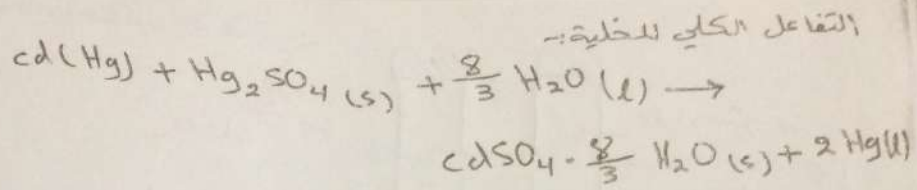 التفاعل الكلي للخلية:-
cd(Hg) + Hg₂SO₄(s) + 8/3 H₂O(l) →
cdSO₄ · 8/3 H₂O(s) + 2Hg(l)